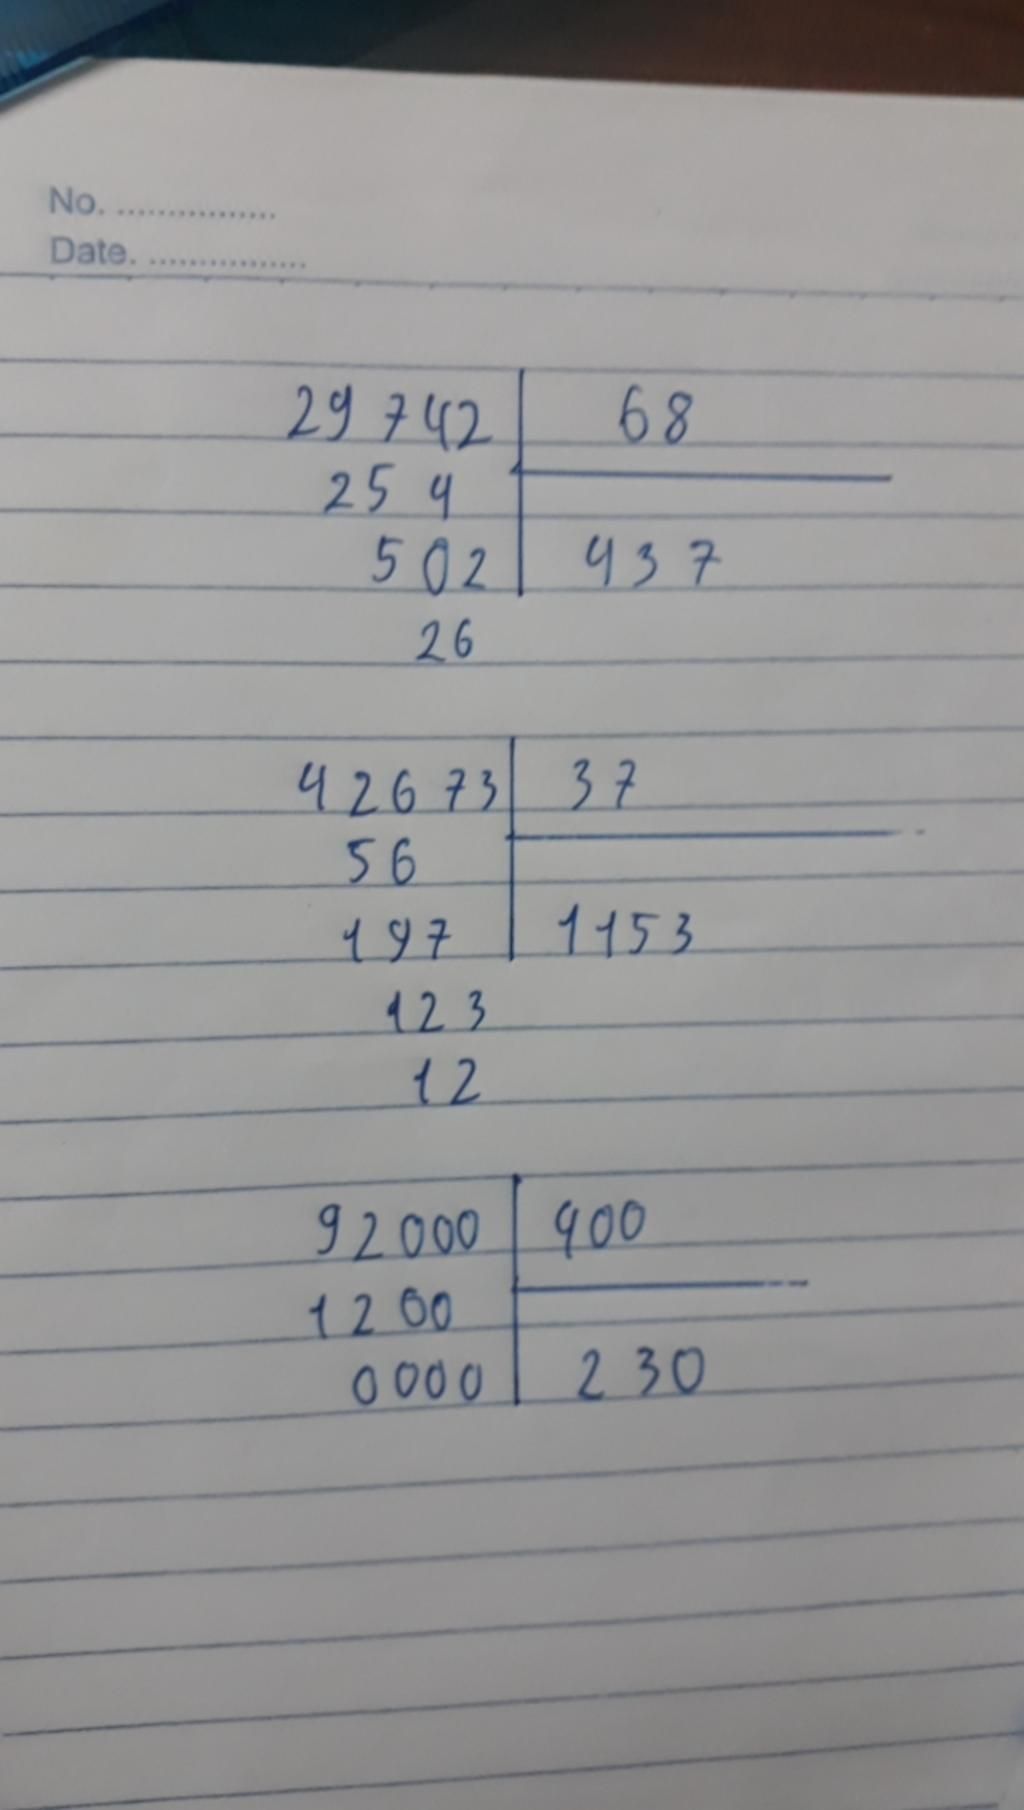 No. ................
Date. ................
29 742 68
25 4
502 437
26
42673 37
56
197 1153
123
12
92000 400
1200
0000 230